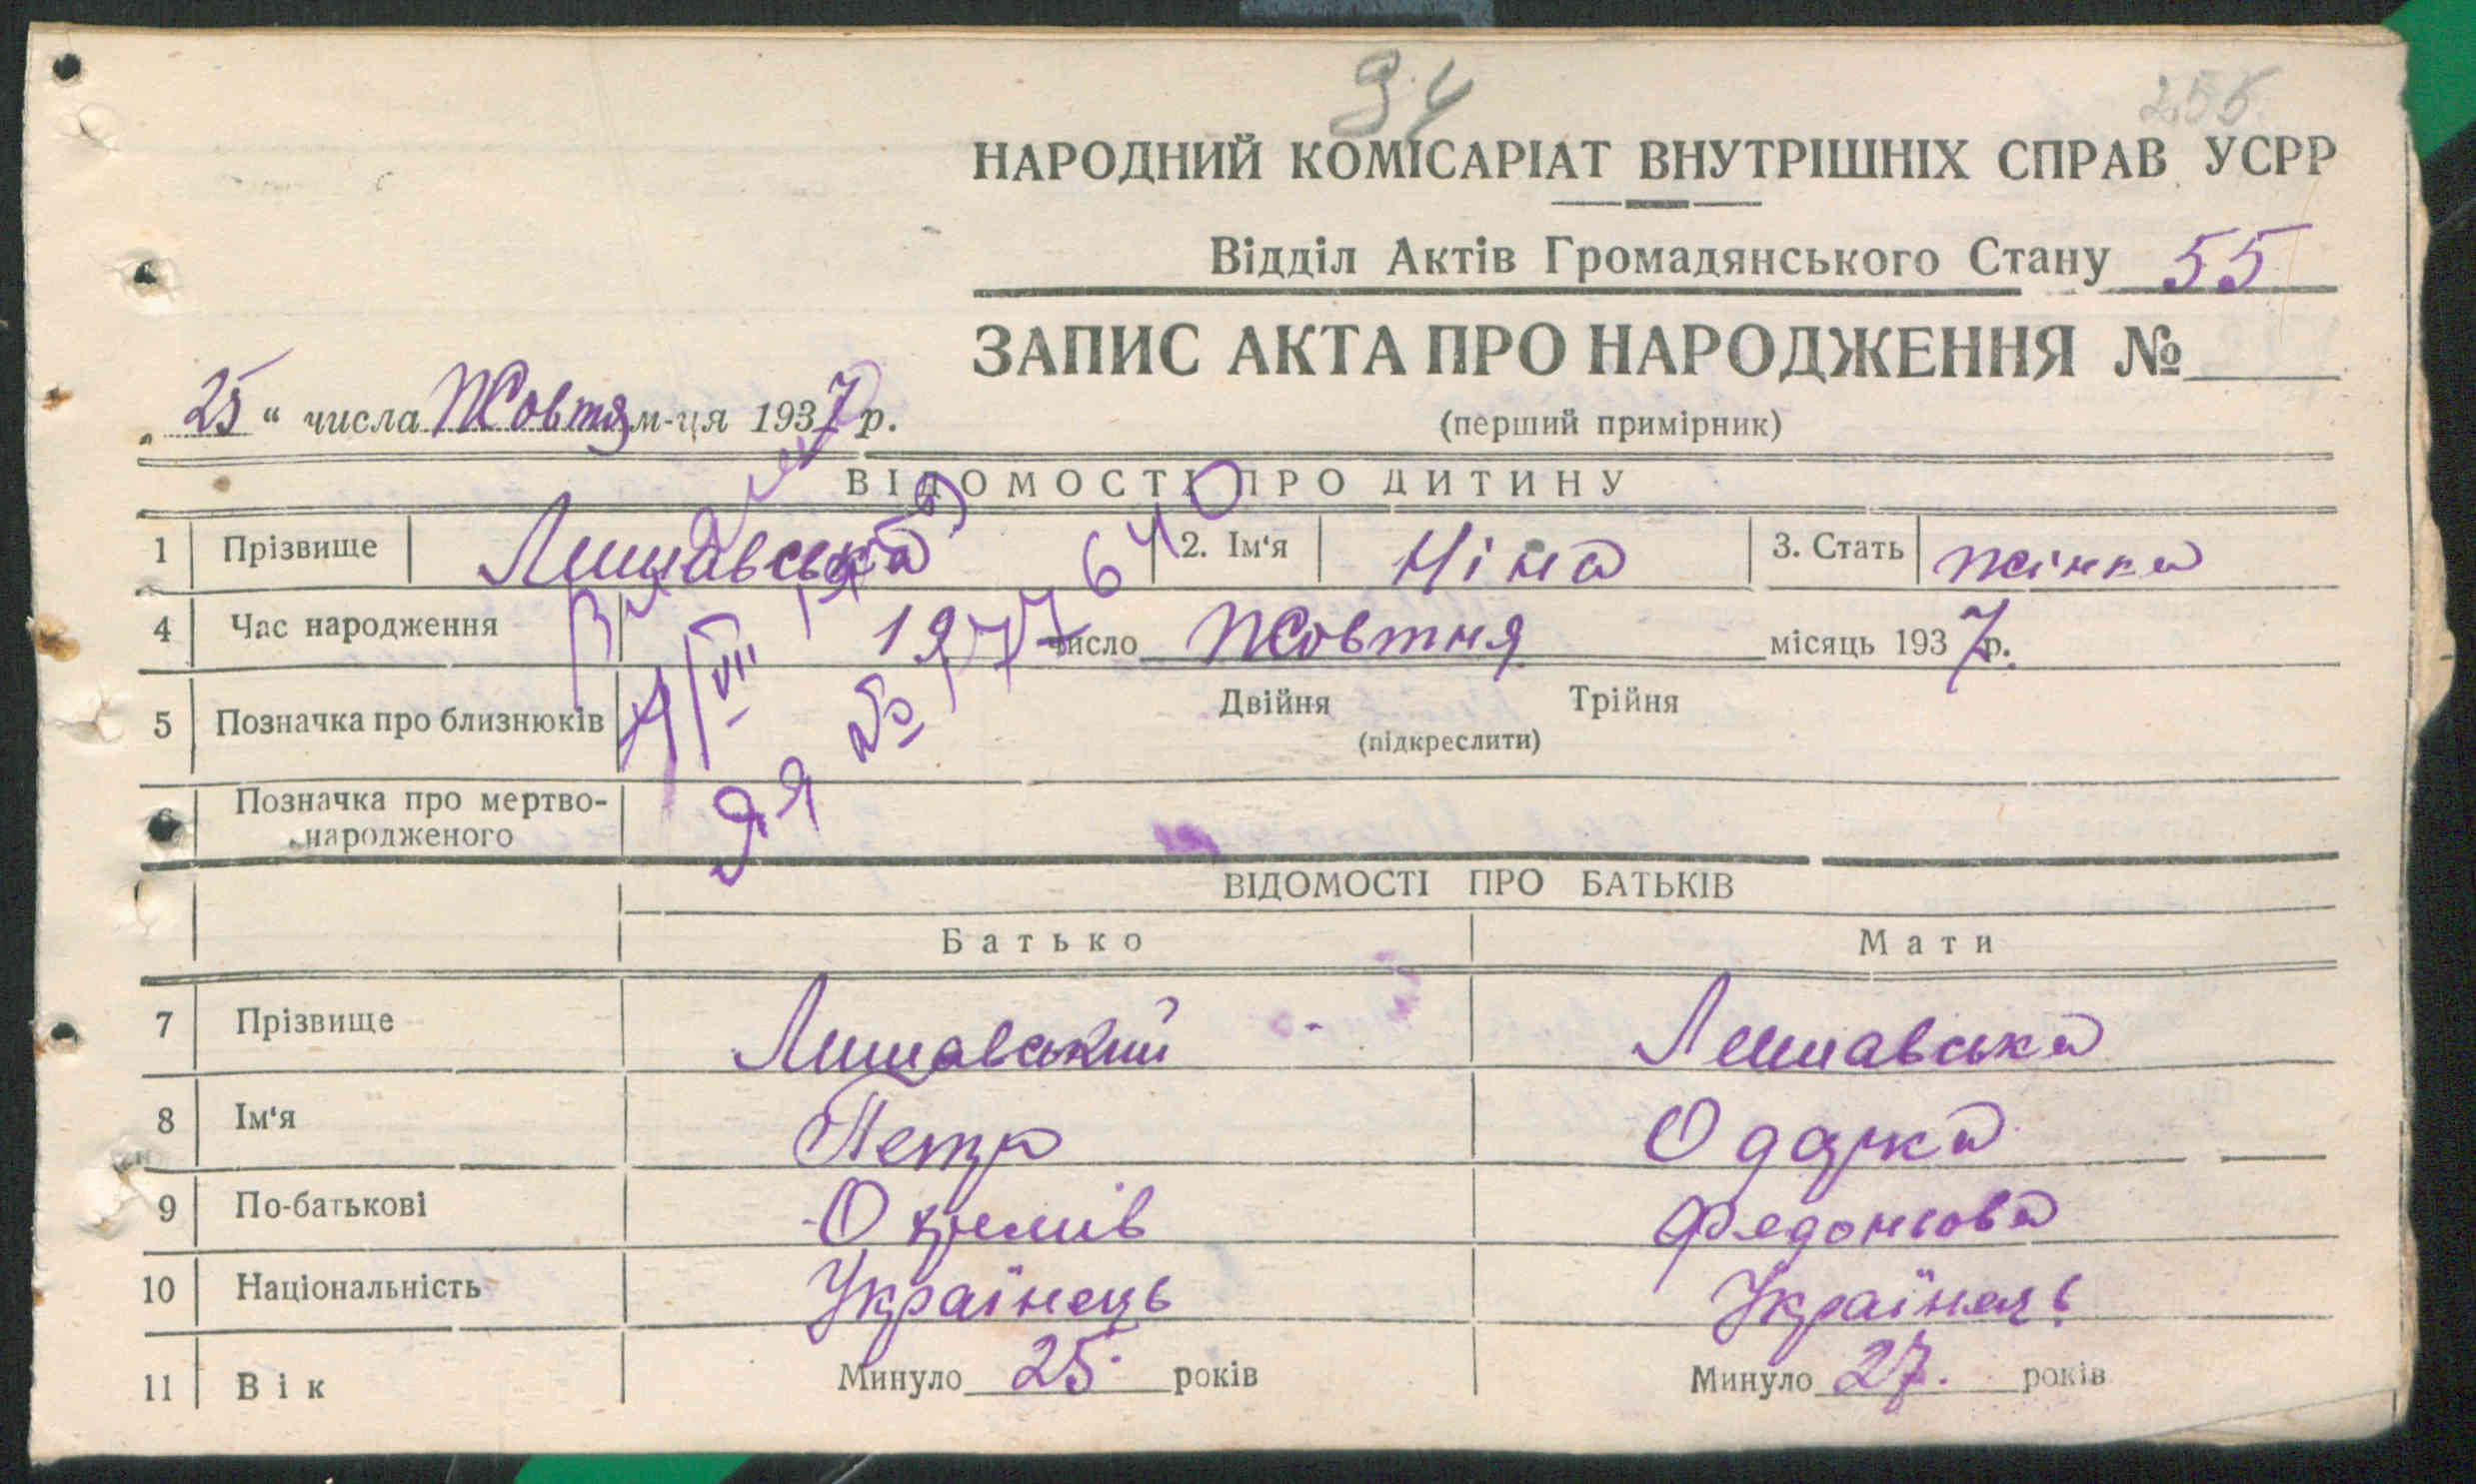 94
255
НАРОДНИЙ КОМІСАРІАТ ВНУТРІШНІХ СПРАВ УСРР
Відділ Актів Громадянського Стану 55
ЗАПИС АКТА ПРО НАРОДЖЕННЯ №
„ 25 “ числа Жовтня м-ця 1937 р.
(перший примірник)
ВІДОМОСТІ ПРО ДИТИНУ
1 Прізвище Лишавська 2. Ім'я Ніна 3. Стать жінка
4 Час народження число Жовтня місяць 1937 р.
5 Позначка про близнюків Двійня Трійня
(підкреслити)
6 Позначка про мертво-
народженого
ВІДОМОСТІ ПРО БАТЬКІВ
Батько Мати
7 Прізвище Лишавський Лишавська
8 Ім'я Петро Одарка
9 По-батькові
10 Національність Українець Українець
11 Вік Минуло 25 років Минуло 27 років